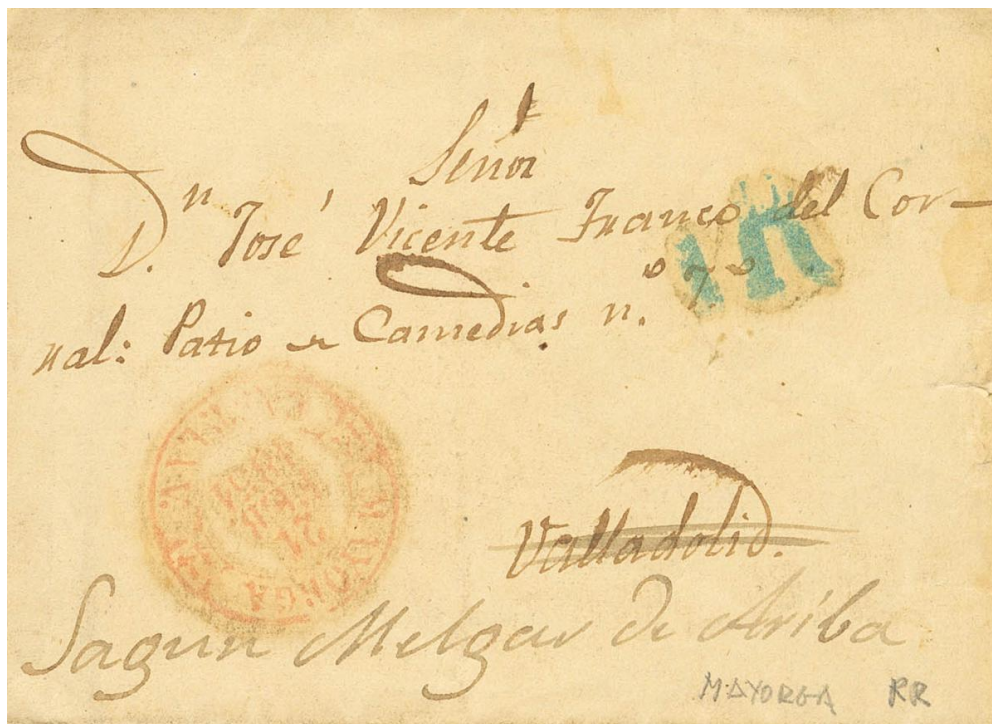 Señor
D.n José Vicente Franco del Cor-
ral: Patio de Camedias n.o 7.o
1R
Valladolid.
Sagun Melgar de Ariba
MAYORGA
MAYORGA RR